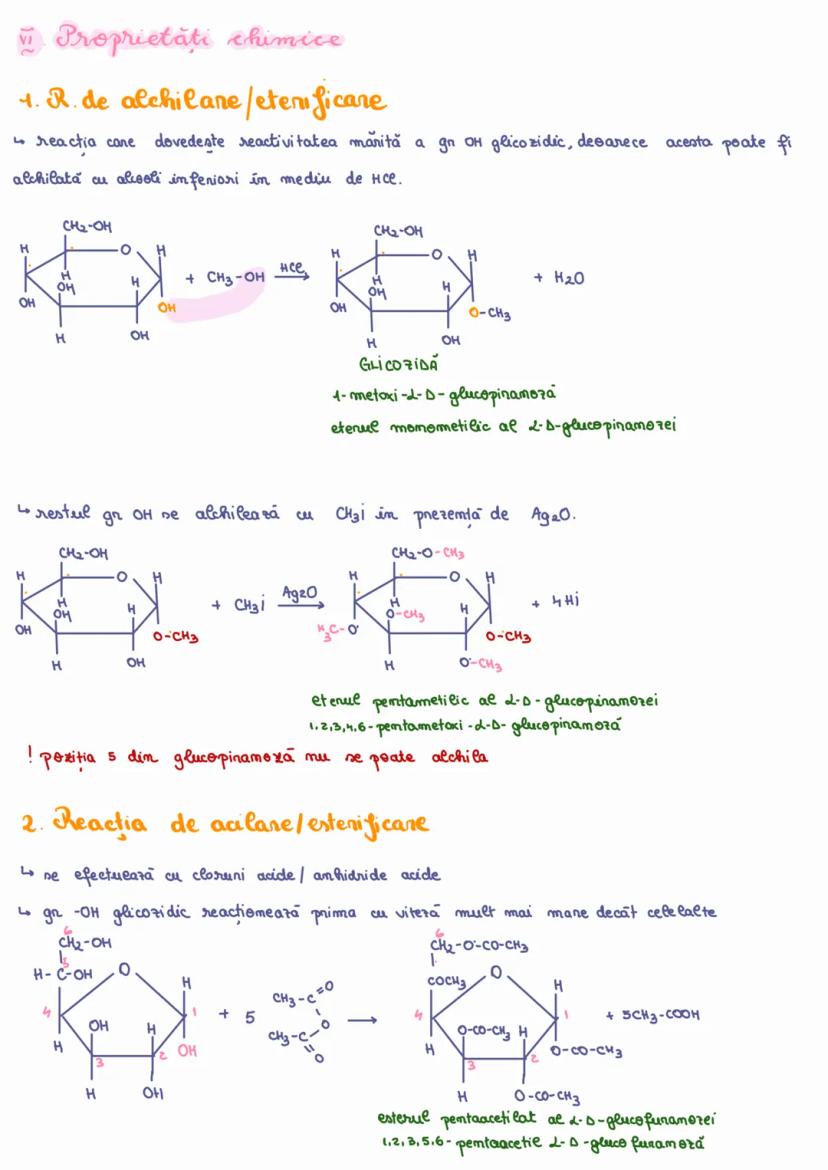 VI Proprietăți chimice
1. R. de alchilare/eterificare
↳ reacția care dovedește reactivitatea mărită a gr OH glicozidic, deoarece acesta poate fi
alchilată cu alcooli inferiori în mediu de HCl.
CH₂-OH CH₂-OH
H O H H O H
H OH H + CH₃-OH HCl → H OH H + H₂O
OH OH OH O-CH₃
H OH H OH
GLICOZIDĂ
1-metoxi-α-D-glucopiranoză
eterul monometilic al α-D-glucopiranozei
↳ restul gr OH se alchilează cu CH₃I în prezență de Ag₂O.
CH₂-OH CH₂-O-CH₃
H O H H O H
H OH H + CH₃I Ag₂O → H O-CH₃ H + 4HI
OH O-CH₃ H₃C-O O-CH₃
H OH H O-CH₃
eterul pentametilic al α-D-glucopiranozei
1,2,3,4,6-pentametoxi-α-D-glucopiranoză
! poziția 5 din glucopiranoză nu se poate alchila
2. Reacția de acilare/esterificare
↳ se efectuează cu cloruri acide/anhidride acide
↳ gr -OH glicozidic reacționează prima cu viteză mult mai mare decât celelalte
6 6
CH₂-OH CH₂-O-CO-CH₃
5
H-C-OH O H COCH₃ O H
4 1 + 5 CH₃-C=O O CH₃-C=O → 4 1 + 5CH₃-COOH
H OH H OH H O-CO-CH₃ H O-CO-CH₃
3 2 3 2
H OH H O-CO-CH₃
esterul pentaacetilat al α-D-glucofuranozei
1,2,3,5,6-pentaacetil α-D-glucofuranoză